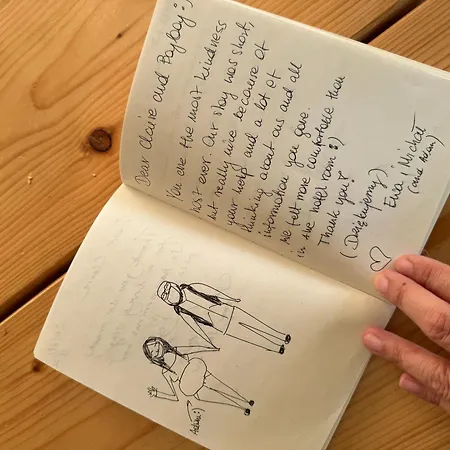 Dear Claire and
You are the most kindness
host ever. Our stay was short,
but really nice because of
your help and a lot of
thinking about us and all
information you gave.
We felt more comfortable than
in the hotel room :)
Thank you!
(Dziękujemy)
Ewa i Michał
(and Adam)
Adam :)